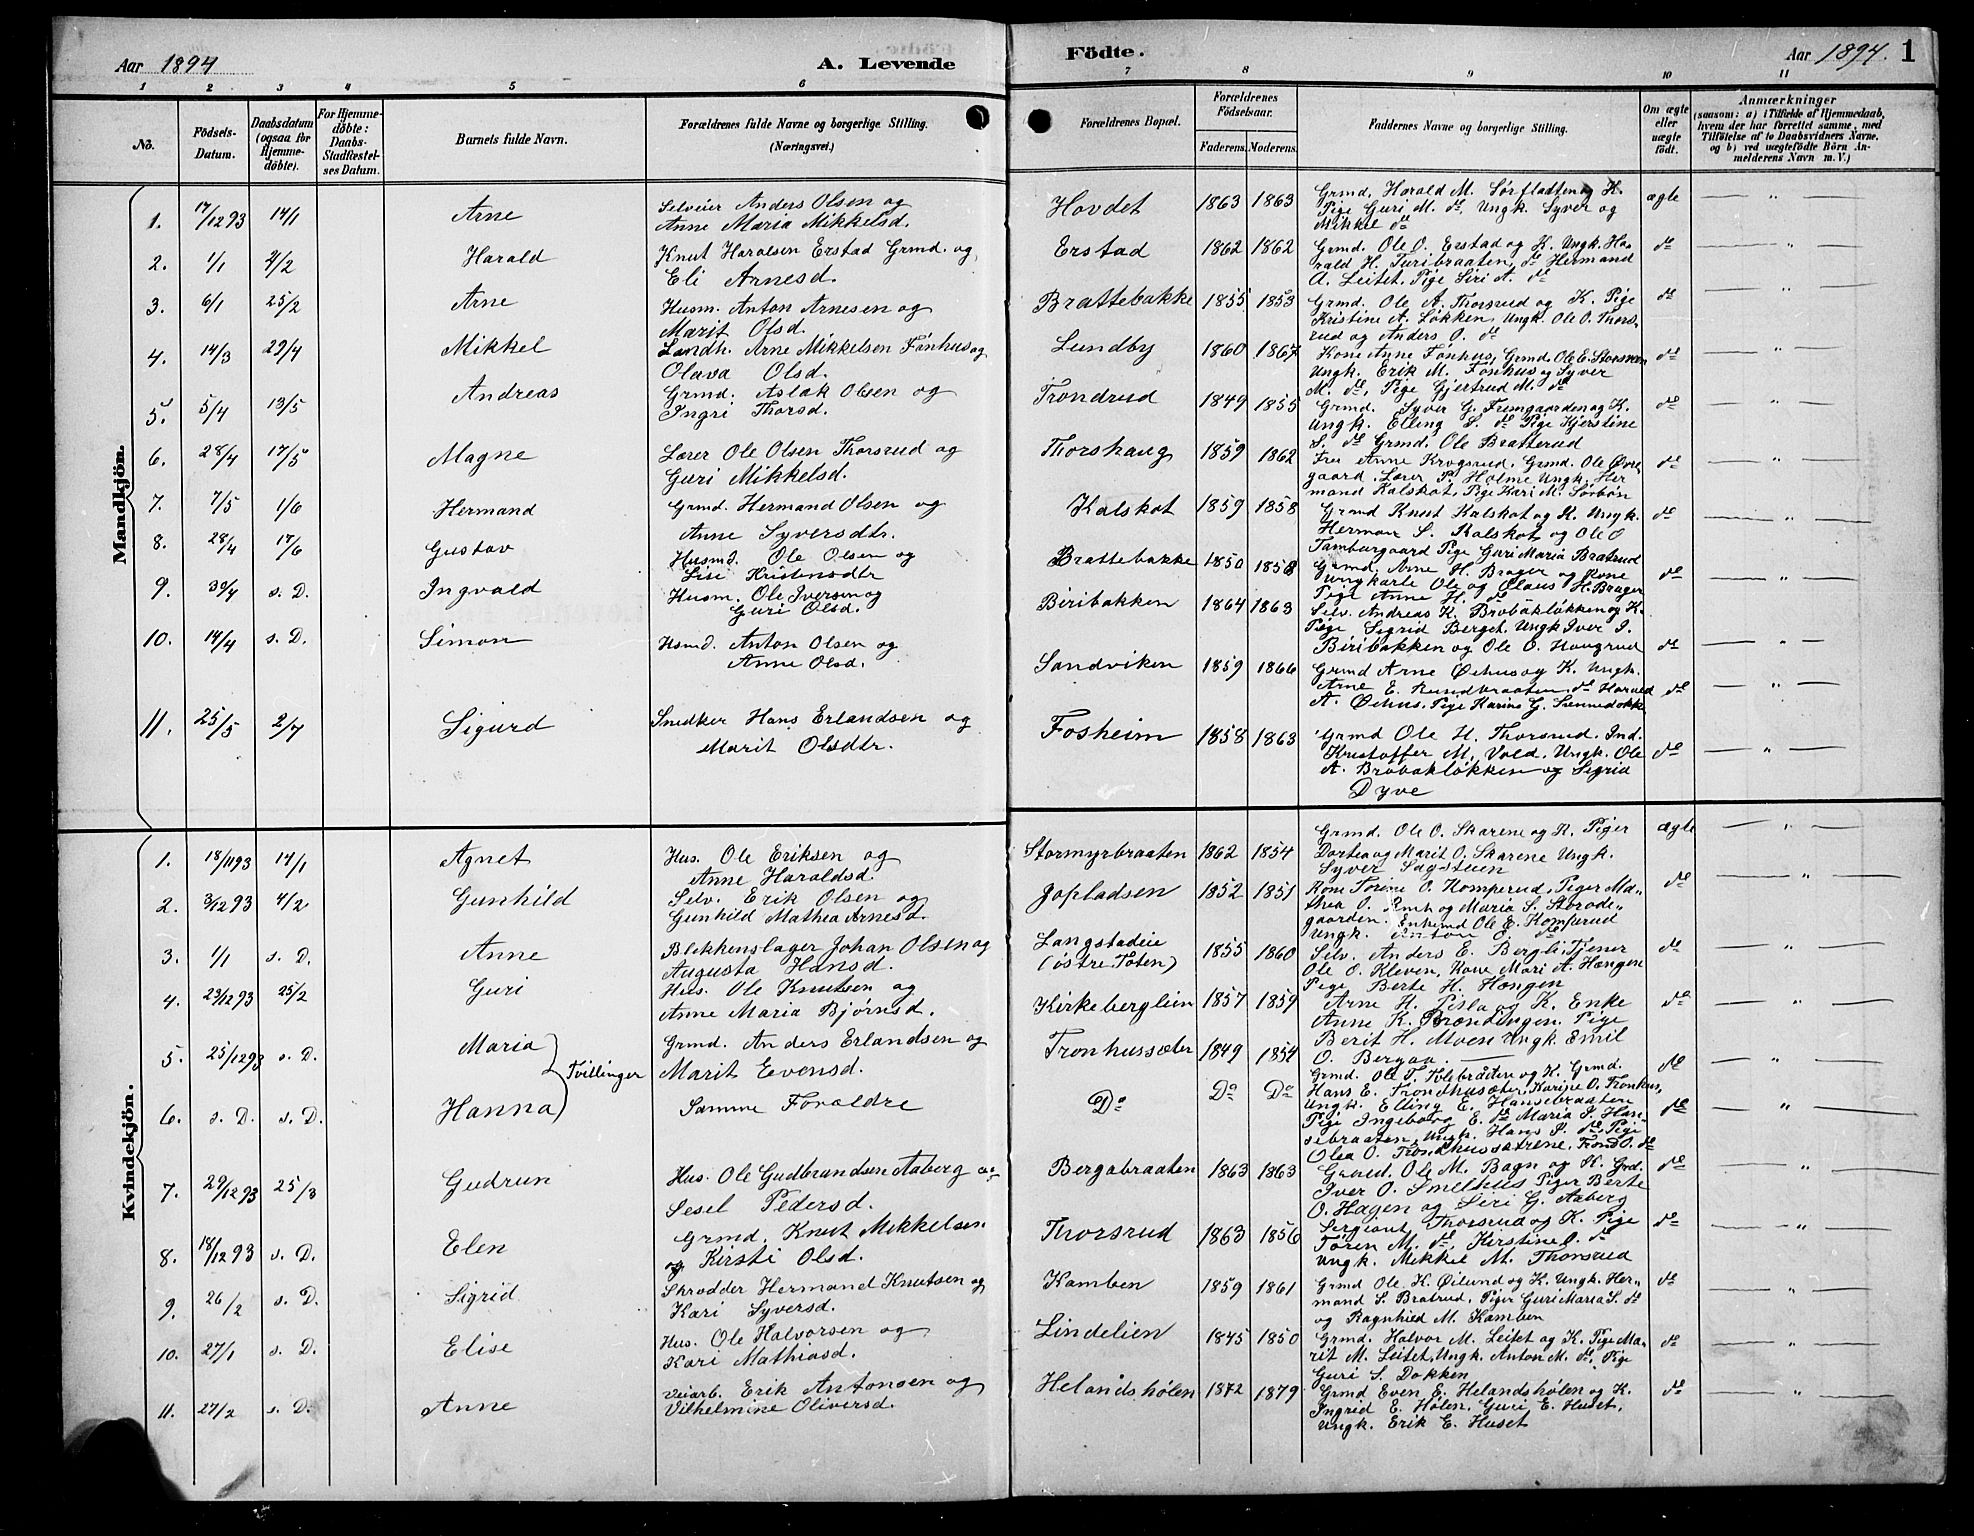 Aar 1894 A. Levende Födte. Aar 1894. 1
1 2 3 4 5 6 7 8 9 10 11
No. Födsets-Datum. Daabsdatum (ogsaa for Hjemmedöbte). For Hjemmedöbte: Daabs-Stadfæstelses Datum. Barnets fulde Navn. Forældrenes fulde Navne og borgerlige Stilling. (Næringsvei.) Forældrenes Bopæl. Forældrenes Födselsaar. Faderens. Moderens. Faddernes Navne og borgerlige Stilling. Om ægte eller uægte født. Anmærkninger (saasom: a) i Tilfælde af Hjemmedaab, hvem der har forrettet samme, med Tilföielse af to Daabsvidners Navne, og b) ved uægtefödte Börn Anmelderens Navn m. V.)
Mandkjön.
1. 17/12 93 14/1 Arne Selveier Anders Olsen og Hovdet 1863 1863 Grmd. Harald M. Sørfladten og K. ægte — " —
Anne Maria Mikkelsd. Pige Guri M. do, Ungk. Syver og
Mikkel do
2. 1/1 2/2 Harald Knut Haralsen Erstad Grmd. og Erstad 1862 1862 Grmd. Ole O. Erstad og K. Ungk. Ha- do — " —
Eli Arnesd. rald H. Turibraaten, do Hermand
A. Leitet, Pige Siri A. do
3. 6/1 25/2 Arne Husm. Anton Arnesen og Brattebakke 1855 1853 Grmd. Ole A. Thorsrud og K. Pige do — " —
Marit Olsd. Kristine A. Løkken, Ungk. Ole O. Thors-
rud og Anders O. do
4. 14/3 29/4 Mikkel Landh. Arne Mikkelsen Fønhus og Lundby 1860 1867 Kone Anne Fønhus, Grmd. Ole E. do — " —
Olava Olsd. Ungk. Erik M. Fønhus og Syver
M. do, Pige Gjertrud M. do
5. 5/4 13/5 Andreas Grmd. Aslak Olsen og Trondrud 1849 1855 Grmd. Syver G. Fremgaarden og K. do — " —
Ingri Thorsd. Ungk. Elling S. do Pige Kjerstine
S. do Grmd. Ole Bratterud
6. 28/4 17/5 Magne Lærer Ole Olsen Thorsrud og Thorshaug 1859 1862 Fru Anne Krogsrud, Grmd. Ole Øvre- do — " —
Guri Mikkelsd. gaard, Lærer P. Holme Ungk. Her
mand Kalskot, Pige Kari M. Sørbøn
7. 7/5 1/6 Hermand Grmd. Hermand Olsen og Kalskot 1859 1858 Grmd Knut Kalskot og K. Ungk. do — " —
Anne Syversdtr. Herman S. Kalskot og Ole O
Tamburgaard Pige Guri Maria Bratrud
8. 28/4 17/6 Gustav Husmd. Ole Olsen og Brattebakke 1850 1858 Grmd. Arne H. Brager og Kone do — " —
Lise Kristensdtr Ungkarle Ole og Claus H. Brager
Pige Anne H. do
9. 30/4 s. D. Ingvald Husm. Ole Iversen og Biribakken 1864 1863 Selv. Andreas K. Brobakløkken og K.
Guri Olsd. Pige Sigrid Berget. Ungk Iver I.
Biribakken og Ole O. Haugrud do — " —
10. 14/4 s. D. Simon Hsmd. Anton Olsen og Sandviken 1859 1866 Grmd Arne Øihus og K. Ungk.
Anne Olsd. Arne E. Rundbraaten, do Harald do — " —
A. Øihus, Pige Karine G.
11. 25/5 2/7 Sigurd Snedker Hans Erlandsen og Fosheim 1858 1863 Grmd Ole H. Thorsrud. Ind.
Marit Olsdtr. Kristoffer M. Vold, Ungk. Ole do — " —
A. Brobakløkken og Sigrid
Dyve
Kvindekjön.
1. 18/11 93 14/1 Agnet Hus. Ole Eriksen og Stormyrbraaten 1862 1854 Grmd. Ole O. Skarene og K. Piger ægte — " —
Anne Haraldsd. Dortea og Marit O. Skarene Ungk.
Syver Sagsteien
2. 3/12 93 4/2 Gunhild Selv. Erik Olsen og Jopladsen 1852 1851 Kone Torine O. Komperud, Piger Ma- do — " —
Gunhild Mathea Arnesd. thea O. og Maria S. Storøde-
gaarden. Enkemd Ole E. Komperud
Ungk. Anton E. do
3. 1/1 s. D. Anne Blikkenslager Johan Olsen og Langstadeie 1855 1860 Selv. Anders E. Bergli Tjener do — " —
Augusta Hansd. (østre Toten) Ole O. Kleven, Kone Mari A. Hængen
Pige Berte H. Hængen
4. 23/12 93 25/2 Guri Hus. Ole Knutsen og Kirkeberglien 1857 1859 Arne H. Pisla og K. Enke do — " —
Anne Maria Bjørnsd. Anne K. Brændingen. Pige
Berit H. Moen Ungk Emil
O. Bergaa. —
5. 25/12 93 s. D. Maria Tvillinger Grmd. Anders Erlandsen og Tronhussæter 1849 1854 Grmd. Ole T. Tolebraaten og K. Grmd. do — " —
Marit Evensd. Hans E. Trondhusæter, Karine O. Tronhus,
6. s. D. s. D. Hanna Samme Foraldre Do Do Do Ungk. Elling E. Hansebraaten do — " —
Pige Ingeborg E. do Maria S. Han-
sebraaten, Ungk. Hans S. do, Pige
Olea O. Trondhussætrene, Trond O. do
7. 29/12 93 25/3 Gudrun Hus. Ole Gudbrandsen Aaberg og Bergabraaten 1863 1863 Grmd. Ole M. Bagn og K. Grd. do — " —
Sesel Pedersd. Iver O. Smelhus Piger Berte
O. Hagen og Siri G. Aaberg
8. 18/12 93 s. D. Elen Grmd. Knut Mikkelsen Thorsrud 1863 1856 Sergiant Thorsrud og K. Pige do — " —
og Kirsti Olsd. Toren M. do, Kirstine O. do
Ungk. Mikkel M. Thorsrud
9. 26/2 s. D. Sigrid Skrædder Hermand Knutsen og Kamben 1859 1861 Grmd Ole K. Øilund og K. Ungk. Her- do — " —
Kari Syversd. mand S. Bratrud, Piger Guri Maria S. do
og Ragnhild M. Kamben
10. 27/1 s. D. Elise Hus. Ole Halvorsen og Lindelien 1845 1850 Grmd. Halvor M. Leitet og K. Pige Ma- do — " —
Kari Mathiasd. rit M. Leitet, Ungk. Anton M. do, Pige
Guri S. Dokken
11. 27/2 s. D. Anne Veiarb. Erik Antonsen og Helandshølen 1872 1879 Grmd Even E. Helandshølen og K. do — " —
Vilhelmine Oliversd. Ingrid E. Hølen, Guri E. Huset,
Ungk. Erik E. Huset